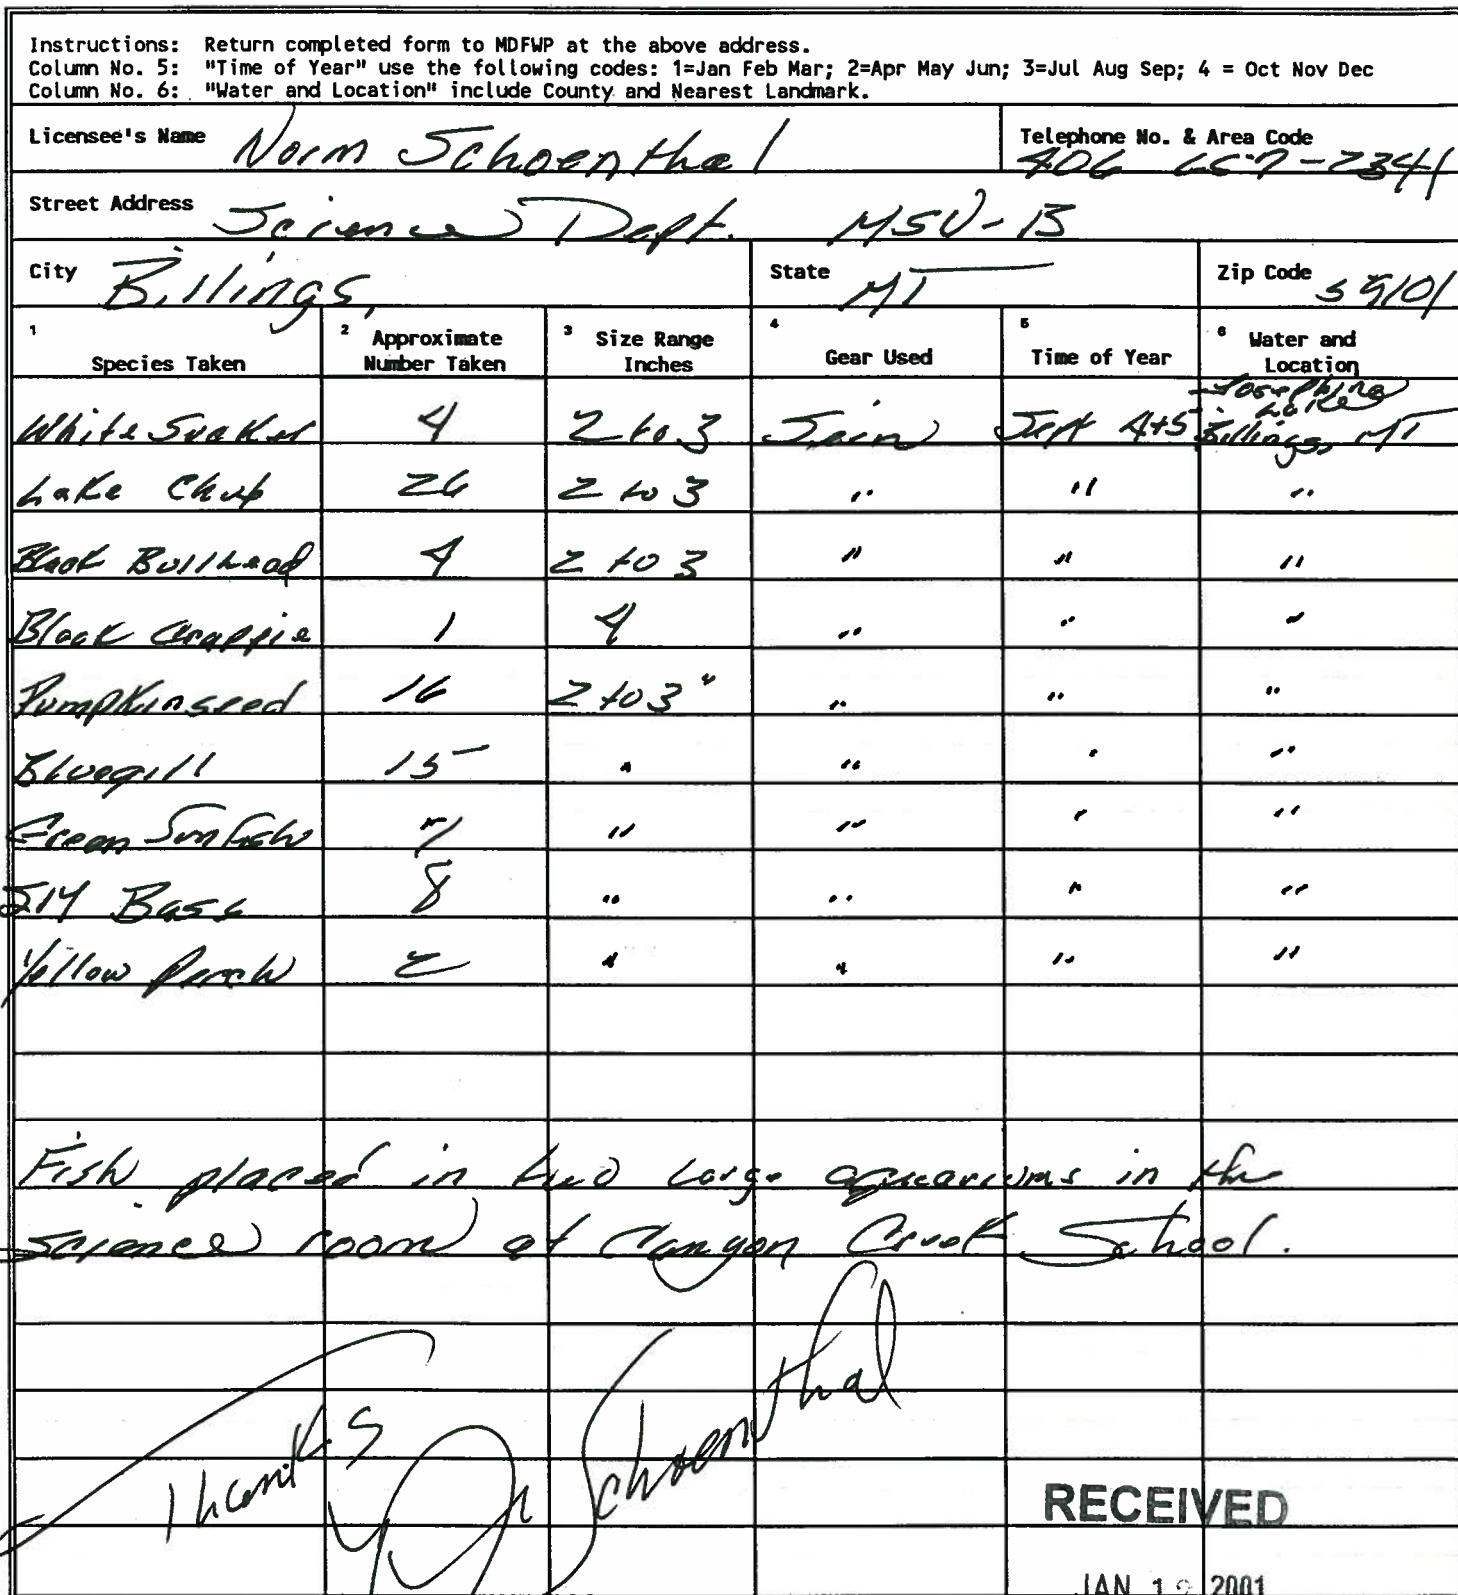 Instructions: Return completed form to MDFWP at the above address.
Column No. 5: "Time of Year" use the following codes: 1=Jan Feb Mar; 2=Apr May Jun; 3=Jul Aug Sep; 4 = Oct Nov Dec
Column No. 6: "Water and Location" include County and Nearest Landmark.
Licensee's Name Norm Schoenthal Telephone No. & Area Code 406 657-2341
Street Address Science Dept. MSU-B
City Billings, State MT Zip Code 59101
1 Species Taken 2 Approximate Number Taken 3 Size Range Inches 4 Gear Used 5 Time of Year 6 Water and Location
White Sucker 4 2 to 3 Sein Sept 4+5 Josephine Lake Billings, MT
Lake Chub 26 2 to 3 " " "
Black Bullhead 4 2 to 3 " " "
Black Crappie 1 4 " " "
Pumpkinseed 16 2 to 3" " " "
Bluegill 15 " " " "
Green Sunfish 7 " " " "
Bass 8 " " " "
Yellow Perch 2 " " " "
Fish placed in two large aquariums in the
science room at Canyon Creek School.
Thanks
Schoenthal
RECEIVED
JAN 2001